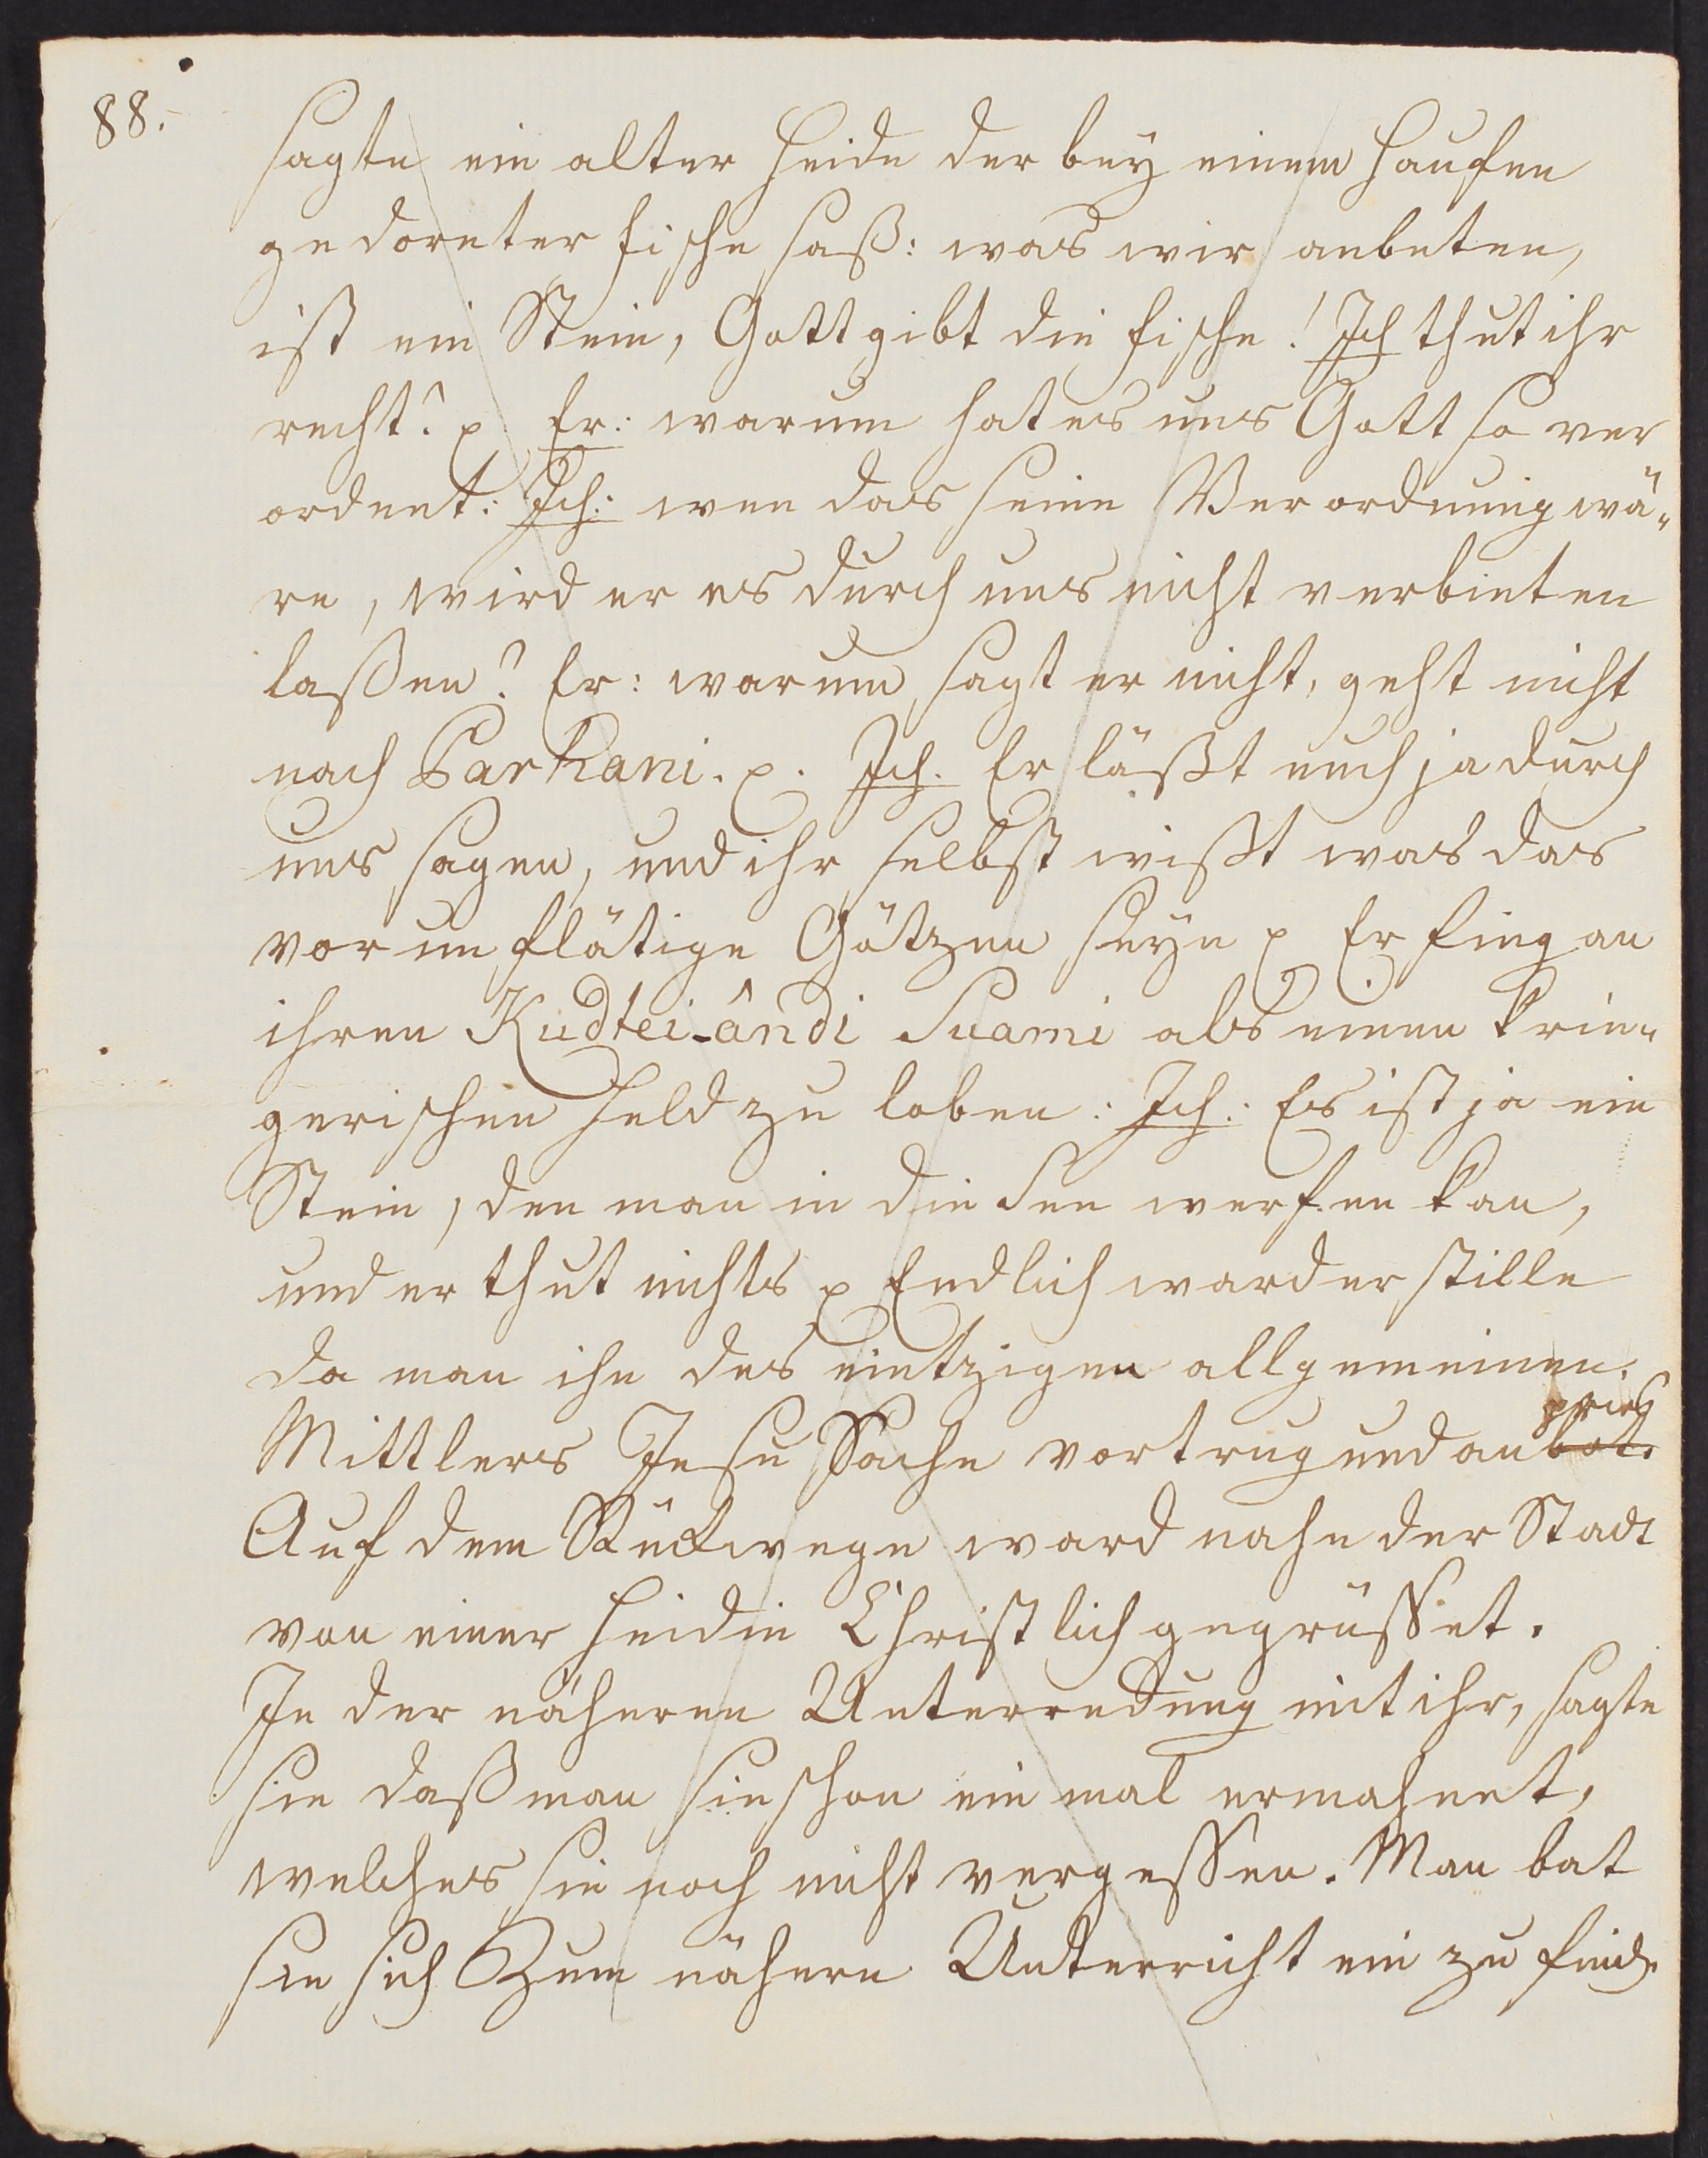 88.
sagte ein alter Heide der bey einem Haufen
gedornter Fische saß: was wir anbeten,
ist ein Stein, Gott gibt die Fische! Ich thut ihr
recht? p. Er: warum hat es uns Gott so ver
ordnet: Ich: wen das seine Verordnung wä-
re, wird er es durch uns nicht verbieten
laßen? Er: warum sagt er nicht, geht nicht
nach Parkani. p. Ich. Er läßt euch ja durch
uns sagen, und ihr selbst wißt was das
vor unflätige Götzen seyn p Er fing an
ihren Kudtei-ândi Suami als einen krie-
gerischen Held zu loben: Ich: Es ist ja ein
Stein, den man in die See werfen kan,
und er thut nichts p Endlich ward er stille
da man ihn des eintzigen allgemeinen
Mittlers Jesu Sache vortrug und anbot.
pries
Auf dem Rükwege ward nahe der Stadt
von einer Heidin Christlich gegrüsset.
In der näheren Unterredung mit ihr, sagte
sie daß man sie schon ein mal ermahnet,
welches sie noch nicht vergessen. Man bat
sie sich zum nähern Unterricht ein zu find.